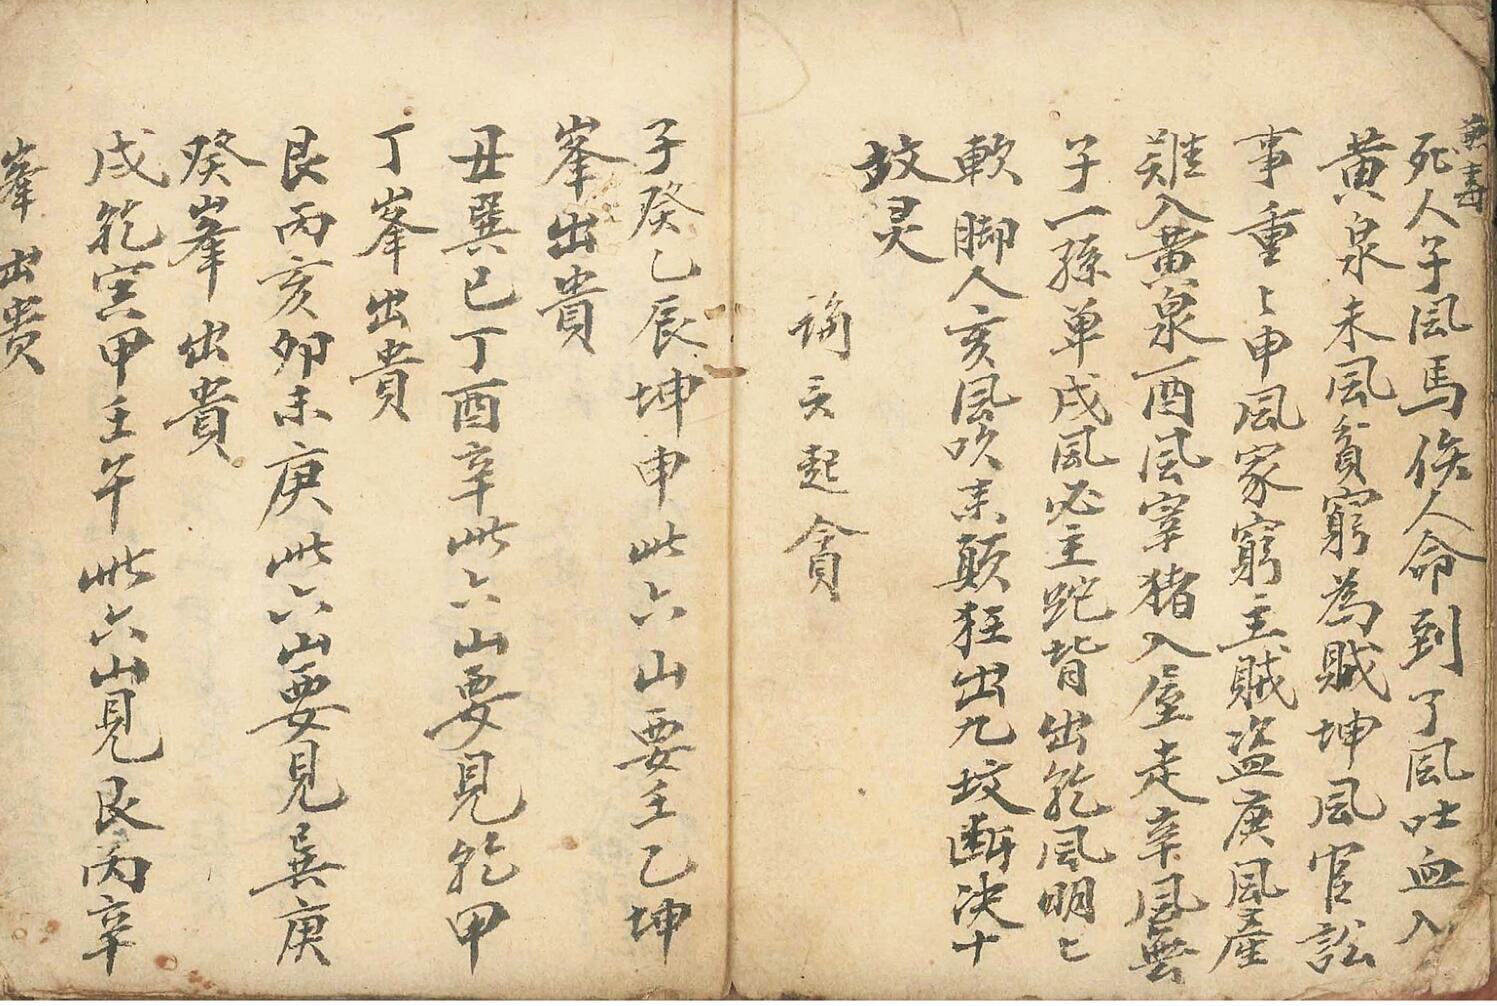 無壽
死人子風馬俟人命到了風吐血入
黄泉未風貧窮為賊坤風官訟
事重〻申風家窮主賊盗庚風產
难入黄泉酉風宰猪入屋走辛風無
子一孫单戌風必主跎背出乾風明〻
軟脚人亥風吹来顛狂出九坟断决十
坟灵
起貪
子癸乙辰坤申此六山要壬乙坤
峯出貴
丑巽巳丁酉辛此六山要見乾甲
丁峯出貴
艮丙亥卯未庚此六山要見巽庚
癸峯出貴
戌乾寅甲壬午此六山見艮丙辛
峯出贵